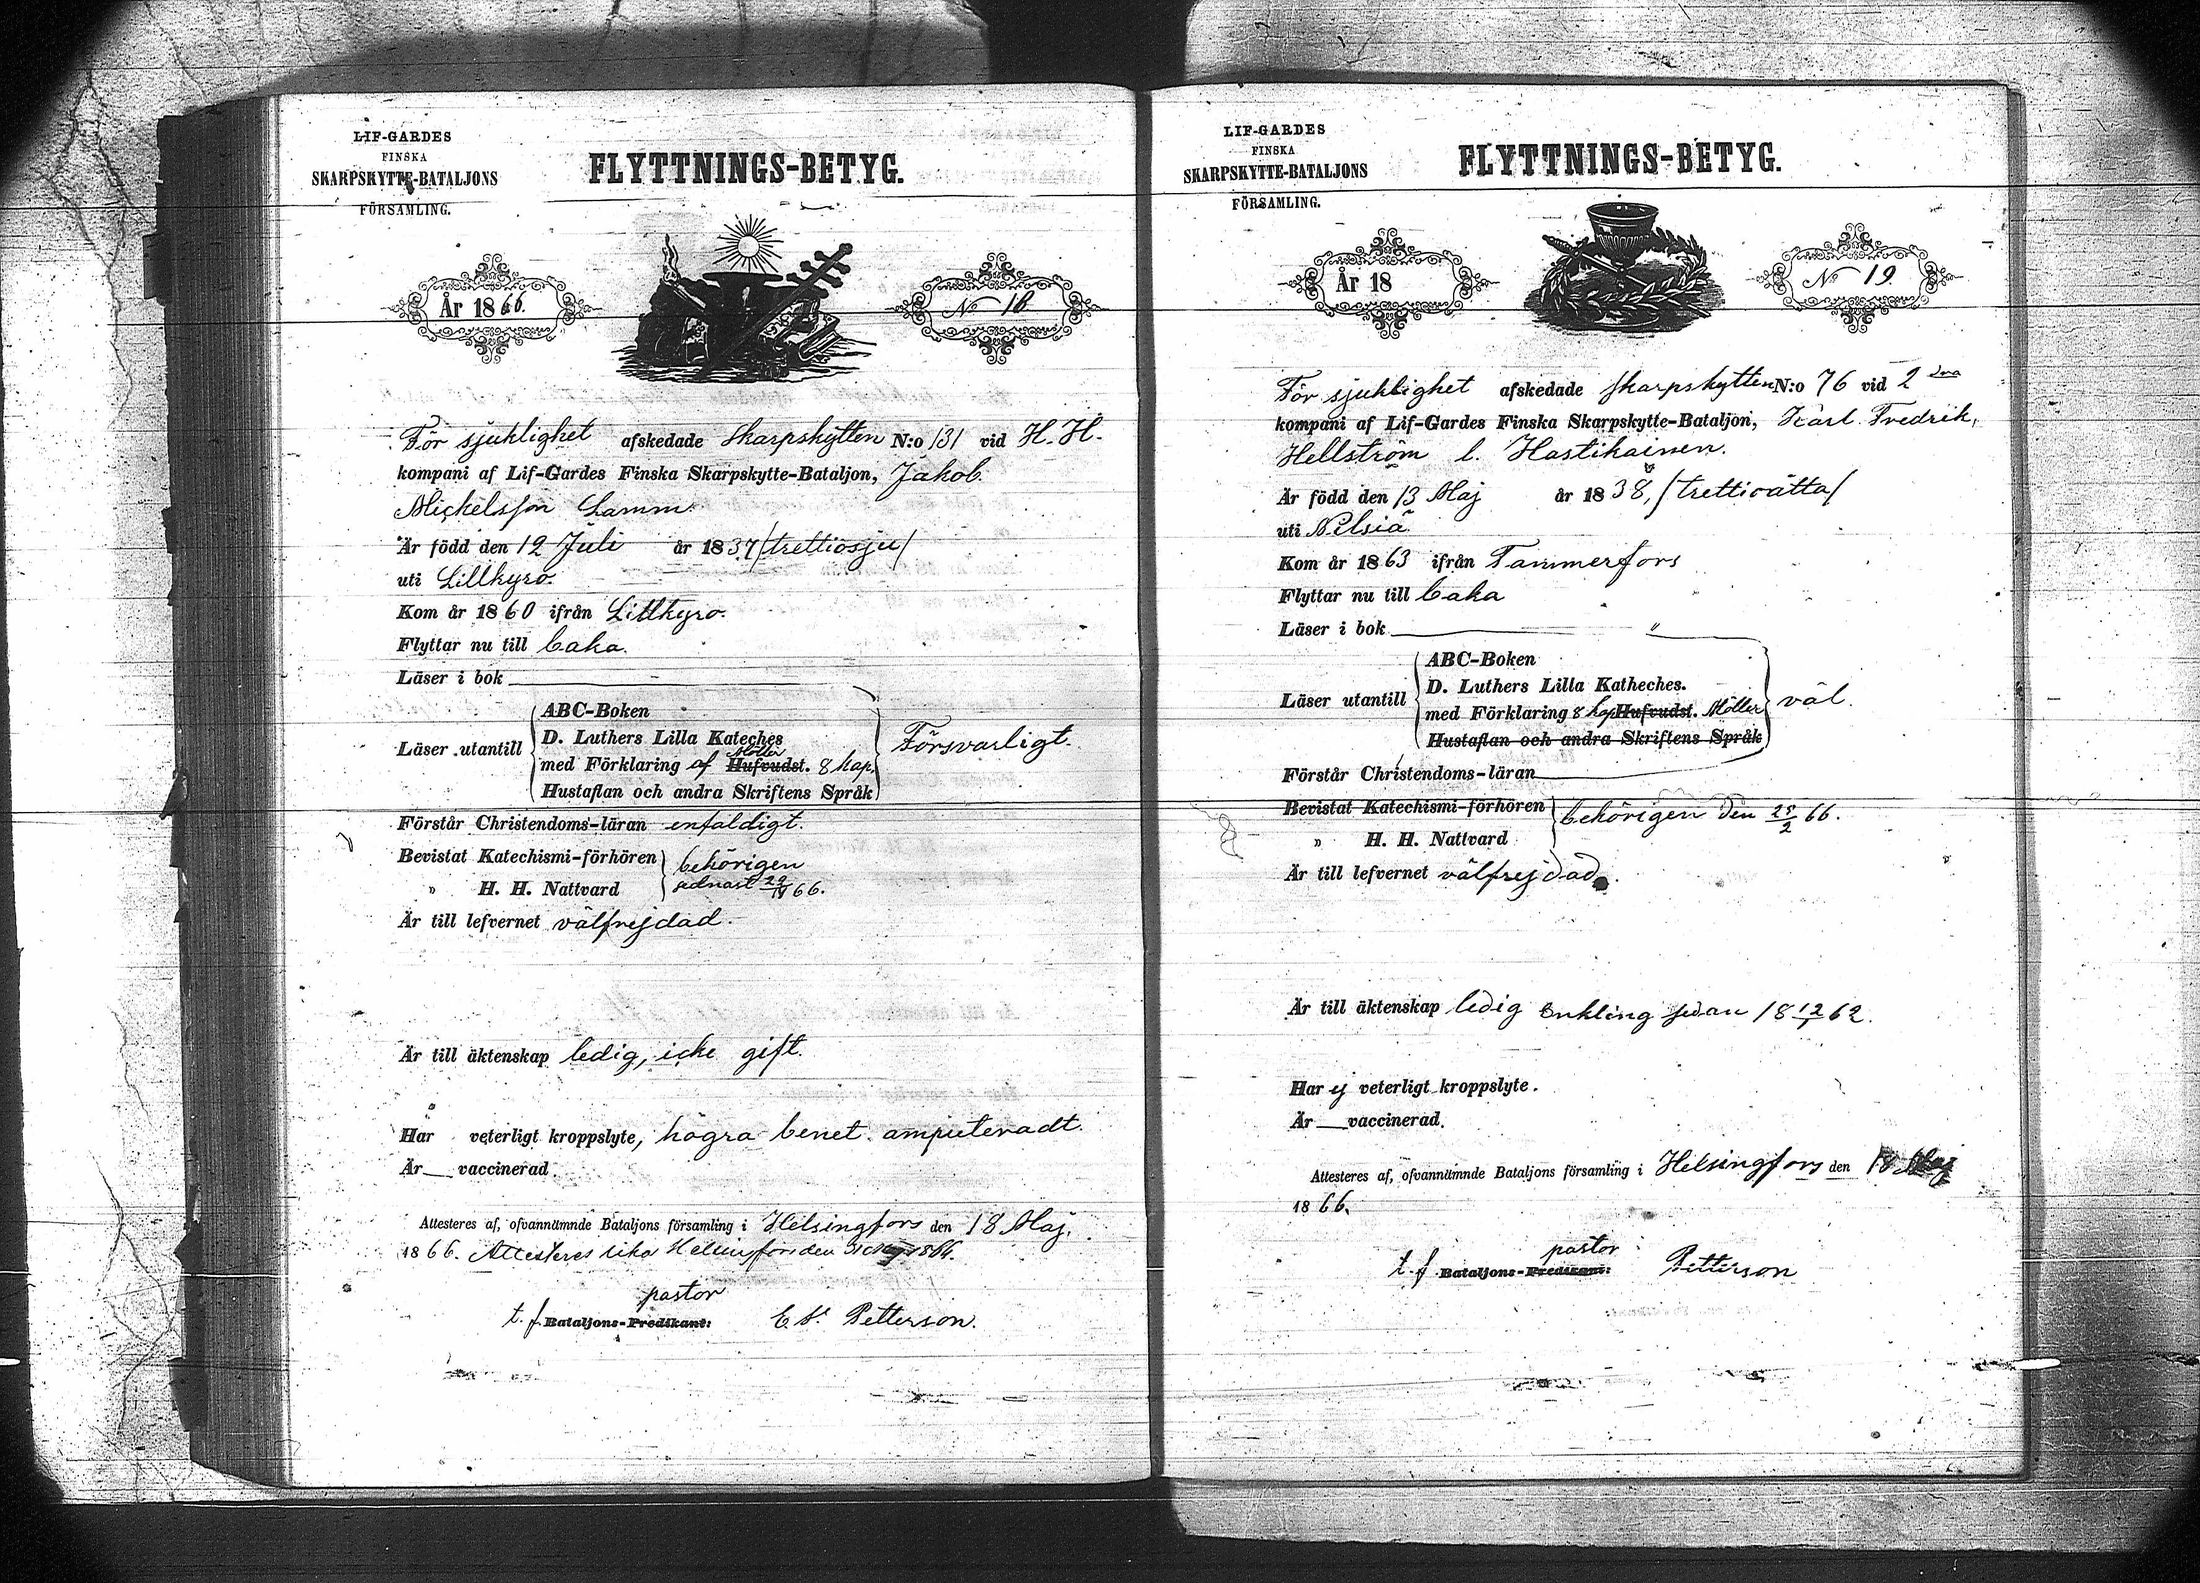 LIF-GARDES
FINSKA
SKARPSKYTTE-BATALJONS
FÖRSAMLING.
FLYTTNINGS-BETYG.
År 1866.
No 18.
För sjuklighet afskedade skarpskytten N:o 131 vid H. H.
kompani af Lif-Gardes Finska Skarpskytte-Bataljon, Jakob
Mickelsson Lamm.
Är född den 12 Juli år 1837 /trettiosju/
uti Lillkyro.
Kom år 1860 ifrån Lillkyro.
Flyttar nu till
Läser i bok
Läser utantill
ABC-Boken
D. Luthers Lilla Kateches
Möller
med Förklaring af Hufvudst. 8 kap.
Hustaflan och andra Skriftens Språk
Försvarligt.
Förstår Christendoms-läran enfaldigt.
Bevistat Katechismi-förhören
" H. H. Nattvard
behörigen
sednast 29/IV 66.
Är till lefvernet välfrejdad.
Är till äktenskap ledig, icke gift.
Har veterligt kroppslyte, högra benet amputeradt.
Är vaccinerad.
Attesteres af, ofvannämnde Bataljons församling i Helsingfors den 18 Maj.
1866. Attesteres Helsingfors den 1866.
pastor
t. f. Bataljons-Predikant: Petterson.
LIF-GARDES
FINSKA
SKARPSKYTTE-BATALJONS
FÖRSAMLING.
FLYTTNINGS-BETYG.
År 18
No 19.
För sjuklighet afskedade skarpskytten N:o 76 vid 2 dra
kompani af Lif-Gardes Finska Skarpskytte-Bataljon, Karl Fredrik,
Hellström l. Hastikainen.
Är född den 13 Maj år 1838, /trettioåtta/
uti Nilsiä
Kom år 1863 ifrån Tammerfors
Flyttar nu till
Läser i bok "
Läser utantill
ABC-Boken
D. Luthers Lilla Katheches.
med Förklaring 8 kap Hufvudst. Möller
Hustaflan och andra Skriftens Språk
väl.
Förstår Christendoms-läran
Bevistat Katechismi-förhören
" H. H. Nattvard
behörigen den 25/2 66.
Är till lefvernet välfrejdad.
Är till äktenskap ledig Enkling sedan 18 12/1 62.
Har ej veterligt kroppslyte.
Är vaccinerad.
Attesteres af, ofvannämnde Bataljons församling i Helsingfors den 18 Maj
1866.
pastor
t. f Bataljons-Predikant: Petterson